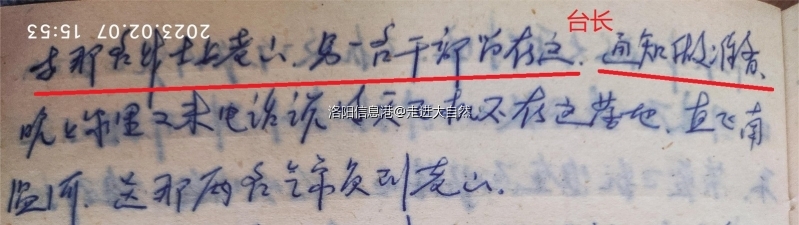 2023.02.07 15:53
台长
那名战士上老山,另一名干部留在这.通知做准备、
晚上师里又来电话说 机不在这落地.直飞南
洛阳信息港@走进大自然
温河.送那两名气象员到老山.